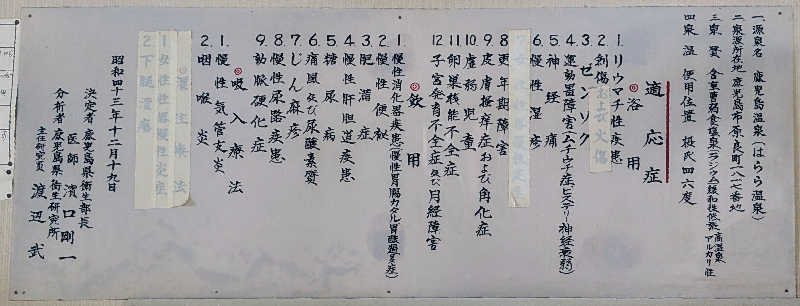 一.源泉名 鹿児島温泉(はらら温泉)
二.泉源所在地 鹿児島市原良町八一七番地
三.泉質 含重曹弱食塩泉(ラジウム)(緩和性低張高温泉アルカリ性
四.泉温 使用位置 摂氏四六度
適応症
◎浴用
1.リウマチ性疾患
2.創傷および火傷
3.ゼンソク
4.運動器障害(ムチウチ症、ヒステリー神経衰弱)
5.神経痛
6.慢性湿疹
8.更年期障害
9.皮膚掻痒症および角化症
10.虚弱児童
11.卵巣機能不全症
12.子宮発育不全症及び月経障害
◎飲用
1.慢性消化器疾患(慢性胃腸カタル胃酸過多症)
2.慢性便秘
3.肥満症
4.慢性肝胆道疾患
5.糖尿病
6.痛風及び尿酸素質
7.じん麻疹
8.慢性尿路疾患
9.動脈硬化症
◎吸入療法
1.慢性気管支炎
2.咽喉炎
◎灌注療法
1.女性性器慢性炎症
2.下腿潰瘍
昭和四十三年十二月十九日
決定者 鹿児島県衛生部長
医師 濱口剛一
分析者 鹿児島県衛生研究所
主任研究員 渡辺武